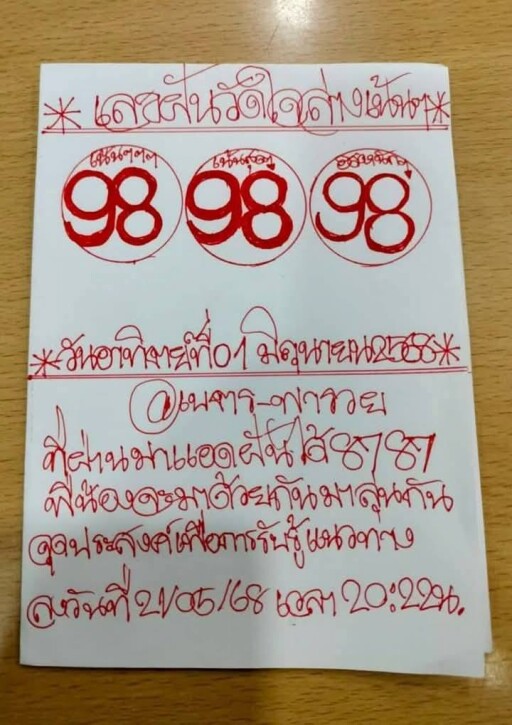 * เลขฝันวัดใจล่างเน้นๆ *
เน้นๆๆๆ เน้นสุดๆ
98 98 98
*วันอาทิตย์ที่01 มิถุนายน2568*
พารวย
ที่ผ่านมาแอดฝันได้87 87
พี่น้องจะมาด้วยกันมาลุ้นกัน
จุดประสงค์เพื่อการรับรู้แนวทาง
ลงวันที่ 21/05/68 เวลา 20:22น.